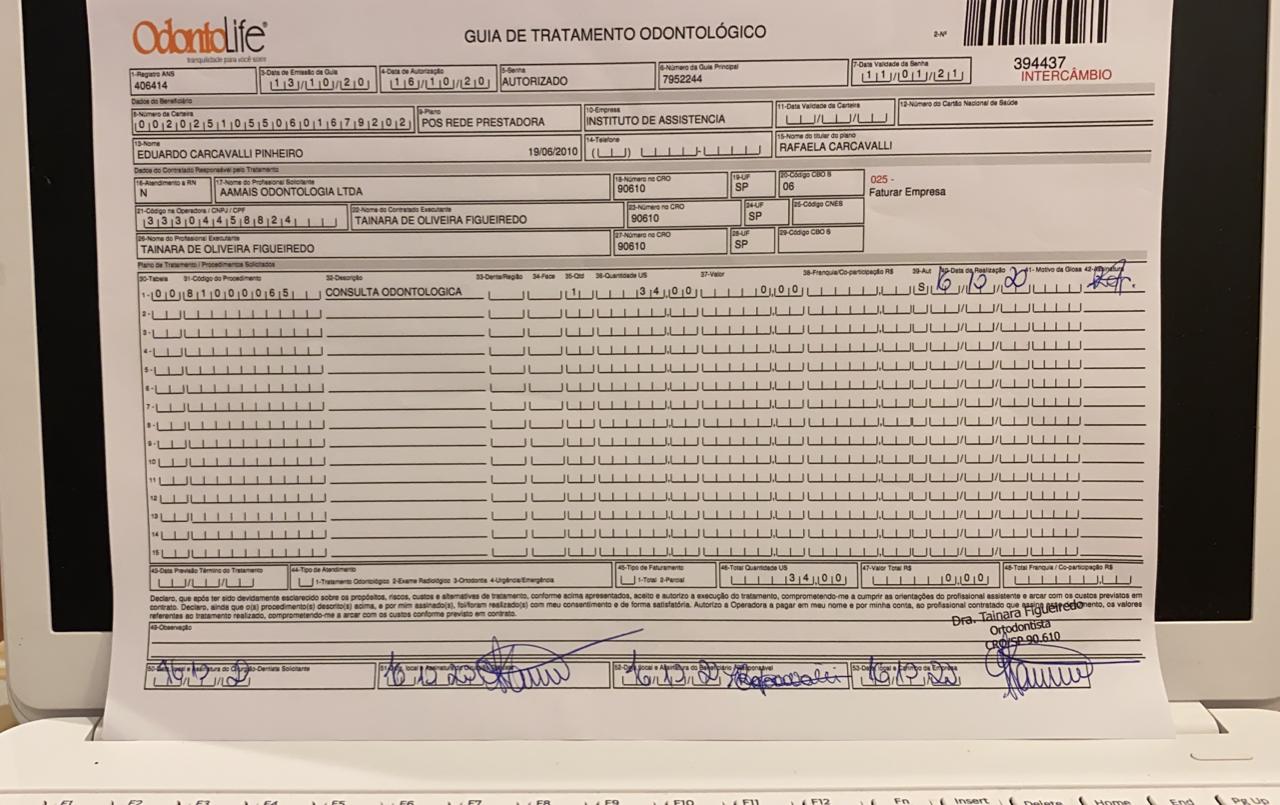 OdontoLife®
tranquilidade para você sorrir
GUIA DE TRATAMENTO ODONTOLÓGICO
2-Nº
394437
INTERCÂMBIO
1-Registro ANS
406414
3-Data de Emissão da Guia
13/10/20
4-Data de Autorização
16/10/20
5-Senha
AUTORIZADO
6-Número da Guia Principal
7952244
7-Data Validade da Senha
11/01/21
Dados do Beneficiário
8-Número da Carteira
00202510550601679202
9-Plano
POS REDE PRESTADORA
10-Empresa
INSTITUTO DE ASSISTENCIA
11-Data Validade da Carteira
12-Número do Cartão Nacional de Saúde
13-Nome
EDUARDO CARCAVALLI PINHEIRO 19/06/2010
14-Telefone
15-Nome do titular do plano
RAFAELA CARCAVALLI
Dados do Contratado Responsável pelo Tratamento
16-Atendimento a RN
N
17-Nome do Profissional Solicitante
AAMAIS ODONTOLOGIA LTDA
18-Número no CRO
90610
19-UF
SP
20-Código CBO S
06
025 -
Faturar Empresa
21-Código na Operadora / CNPJ / CPF
33304458824
22-Nome do Contratado Executante
TAINARA DE OLIVEIRA FIGUEIREDO
23-Número no CRO
90610
24-UF
SP
25-Código CNES
26-Nome do Profissional Executante
TAINARA DE OLIVEIRA FIGUEIREDO
27-Número no CRO
90610
28-UF
SP
29-Código CBO S
Plano de Tratamento / Procedimentos Solicitados
30-Tabela 31-Código do Procedimento 32-Descrição 33-Dente/Região 34-Face 35-Qtd 36-Quantidade US 37-Valor 38-Franquia/Co-participação R$ 39-Aut 40-Data de Realização 41- Motivo da Glosa 42-Assinatura
1- 00 81000065 CONSULTA ODONTOLOGICA 1 34,00 0,00 S
2-
3-
4-
5-
6-
7-
8-
9-
10
11
12
13
14
15
43-Data Previsão Término do Tratamento
44-Tipo de Atendimento
1-Tratamento Odontológico 2-Exame Radiológico 3-Ortodontia 4-Urgência/Emergência
45-Tipo de Faturamento
1-Total 2-Parcial
46-Total Quantidade US
34,00
47-Valor Total R$
0,00
48-Total Franquia / Co-participação R$
Declaro, que após ter sido devidamente esclarecido sobre os propósitos, riscos, custos e alternativas de tratamento, conforme acima apresentados, aceito e autorizo a execução do tratamento, comprometendo-me a cumprir as orientações do profissional assistente e arcar com os custos previstos em
contrato. Declaro, ainda que o(s) procedimento(s) descrito(s) acima, e por mim assinado(s), foi/foram realizado(s) com meu consentimento e de forma satisfatória. Autorizo a Operadora a pagar em meu nome e por minha conta, ao profissional contratado que assina esse documento, os valores
referentes ao tratamento realizado, comprometendo-me a arcar com os custos conforme previsto em contrato.
49-Observação
Dra. Tainara Figueiredo
Ortodontista
CRO/SP 90.610
50-Data, local e Assinatura do Cirurgião-Dentista Solicitante
52-Data, local e Assinatura do Beneficiário / Responsável
53-Data, local e Carimbo da Empresa
F1 F2 F3 F4 F5 F6 F7 F8 F9 F10 F11 F12 Fn Insert Delete Home End Pg Up